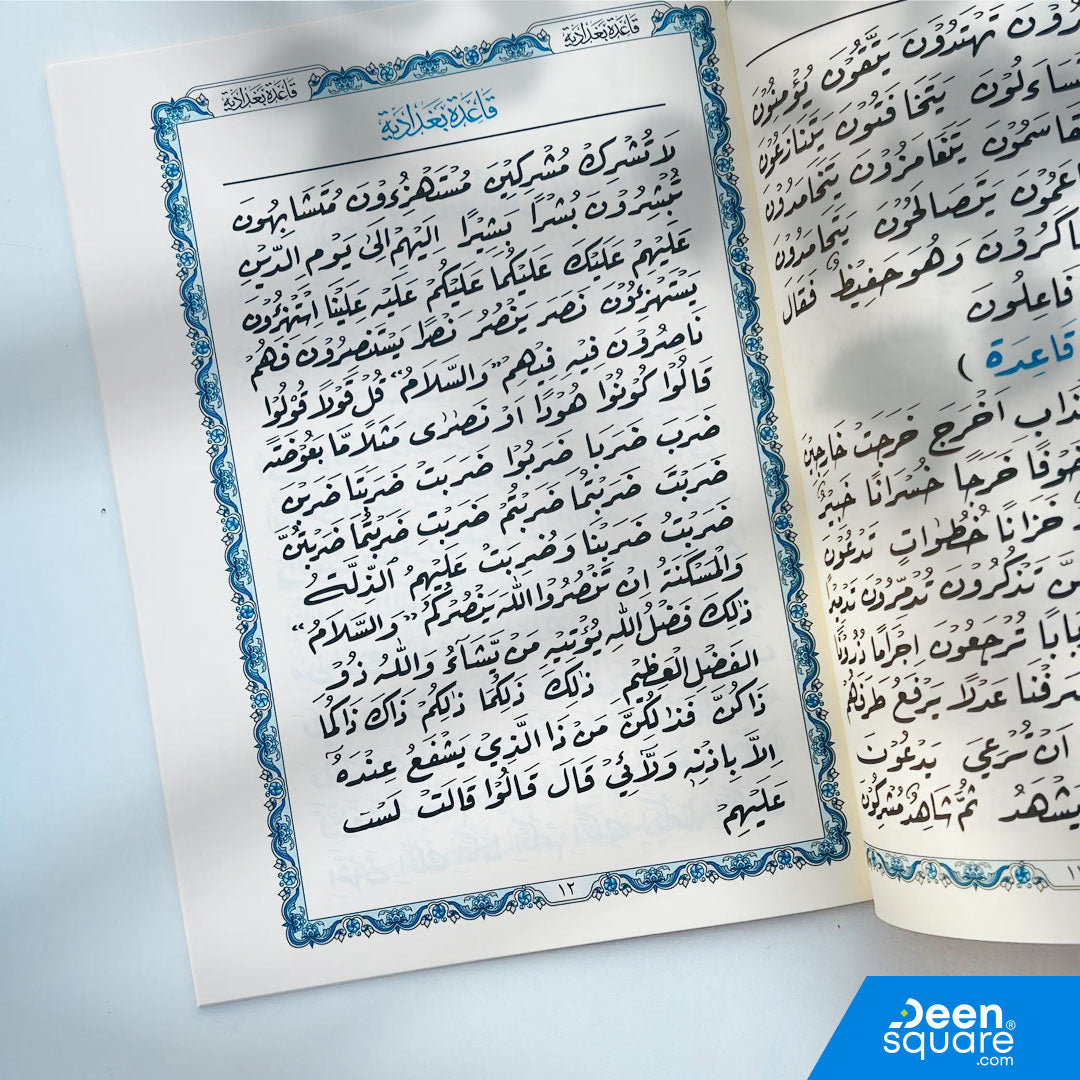 قَاعِدَة بَغْدَادِيَة
قَاعِدَة بَغْدَادِيَة
قَاعِدَة بَغْدَادِيَة
لَا تُشْرِكْ مُشْرِكِيْنَ مُسْتَهْزِءُوْنَ مُتَشَابِهُونَ
تُبْشِرُوْنَ بُشْرًا بَشِيْرًا اِلَيْهِمْ اِلَى يَوْمِ الدِّيْنِ
عَلَيْهِمْ عَلَيْكَ عَلَيْكُمَا عَلَيْكُمْ عَلَيْهِ عَلَيْنَا اِسْتَهْزِءُوْنَ
يَسْتَهْزِءُوْنَ نَصَرَ يَنْصُرُ نَصْرًا يَسْتَنْصِرُوْنَ فَهُمْ
نَاصِرُوْنَ فِيْهِ فِيْهِمْ "وَالسَّلَامُ" قُلْ قَوْلًا قُوْلُوْا
قَالُوْا كُوْنُوْا هُوْدًا اَوْ نَصٰرٰى مَثَلًا مَّا بَعُوْضَةً
ضَرَبَ ضَرَبَا ضَرَبُوْا ضَرَبَتْ ضَرَبَتَا ضَرَبْنَ
ضَرَبْتَ ضَرَبْتُمَا ضَرَبْتُمْ ضَرَبْتِ ضَرَبْتُمَا ضَرَبْتُنَّ
ضَرَبْتُ ضَرَبْنَا وَضُرِبَتْ عَلَيْهِمُ الذِّلَّةُ
وَالْمَسْكَنَةُ اِنْ تَنْصُرُوا اللّٰهَ يَنْصُرْكُمْ "وَالسَّلَامُ"
ذٰلِكَ فَضْلُ اللّٰهِ يُؤْتِيْهِ مَنْ يَّشَآءُ وَاللّٰهُ ذُوْ
الْفَضْلِ الْعَظِيْمِ ذٰلِكَ ذٰلِكُمَا ذٰلِكُمْ ذَاكَ ذَاكُمَا
ذَاكُنَّ فَذٰلِكُنَّ مَنْ ذَا الَّذِيْ يَشْفَعُ عِنْدَهُ
اِلَّا بِاِذْنِهِ قَالَ قَالُوْا قَالَتْ لَسْتَ
عَلَيْهِمْ
١٢
تَهْتَدُوْنَ يَتَّقُوْنَ يُؤْمِنُوْنَ
يَتَخَافَتُوْنَ يَتَنَازَعُوْنَ
يَتَغَامَزُوْنَ
يَتَصَالَحُوْنَ
وَهُوَ حَفِيْظٌ فَقَالَ
فَاعِلُونَ
قَاعِدَة )
اَخْرَجَ خَرَجَتْ
خَوْفًا خَرَجًا خُسْرَانًا خَبِيْرٌ
خُطُوَاتٍ تَدْعُوْنَ
تَذْكُرُوْنَ تُدَمِّرُوْنَ
تُرْجَعُوْنَ اِجْرَامًا
عَدْلًا يَرْفَعُ
يَدْعُوْنَ
يَشْهَدُ ثُمَّ شَاهِدٌ مُشْرِكُوْنَ
Deen
square®
.com